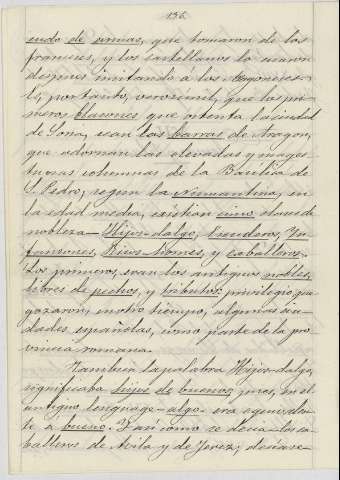 156.
cudo de armas, que tomaron de los
franceses, y los castellanos lo usaron
despues imitando á los Aragoneses.
Es, por tanto, verosímil, que los pri-
meros blasones que ostenta la ciudad
de Soria, sean las barras de Aragon,
que adornan las elevadas y majes-
tuosas columnas de la Basílica de
S. Pedro, según la Numantina, en
la edad media, existian cinco clases de
nobleza—Hijos-dalgo, Escuderos, In-
fanzones, Ricos-homes, y caballeros.
Los primeros, eran los antiguos nobles,
libres de pechos, y tributos: privilegio que
gozaron, en otro tiempo, algunas ciu-
dades españolas, como parte de la pro-
vincia romana.
Tambien la palabra Hijos-dalgo,
significaba hijos de buenos; pues, en el
antiguo lenguage—algo—era equivalen-
te á bueno. Y así como se decia—los ca-
balleros de Avila y de Jerez; decíase